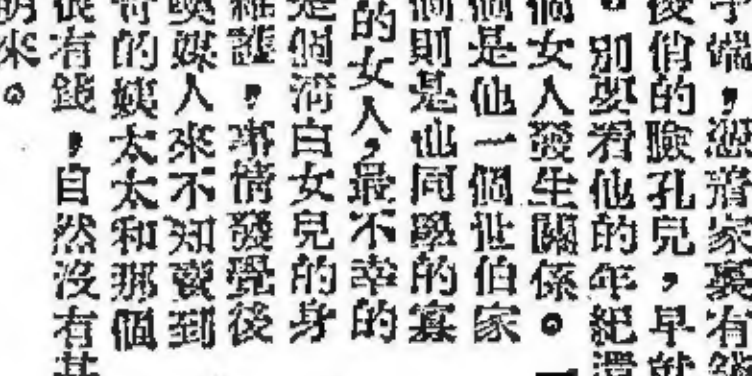 子端，憑着家裏有錢
俊俏的臉孔兒，早就
。別要看他的年紀還
個女人發生關係。一
個是他一個世伯家
個則是他同學的寡
的女人，最不幸的
是個清白女兒的身
維護，事情發覺後
喚媒人來不知賣到
奇的姨太太和那個
很有錢，自然沒有甚
朋來。